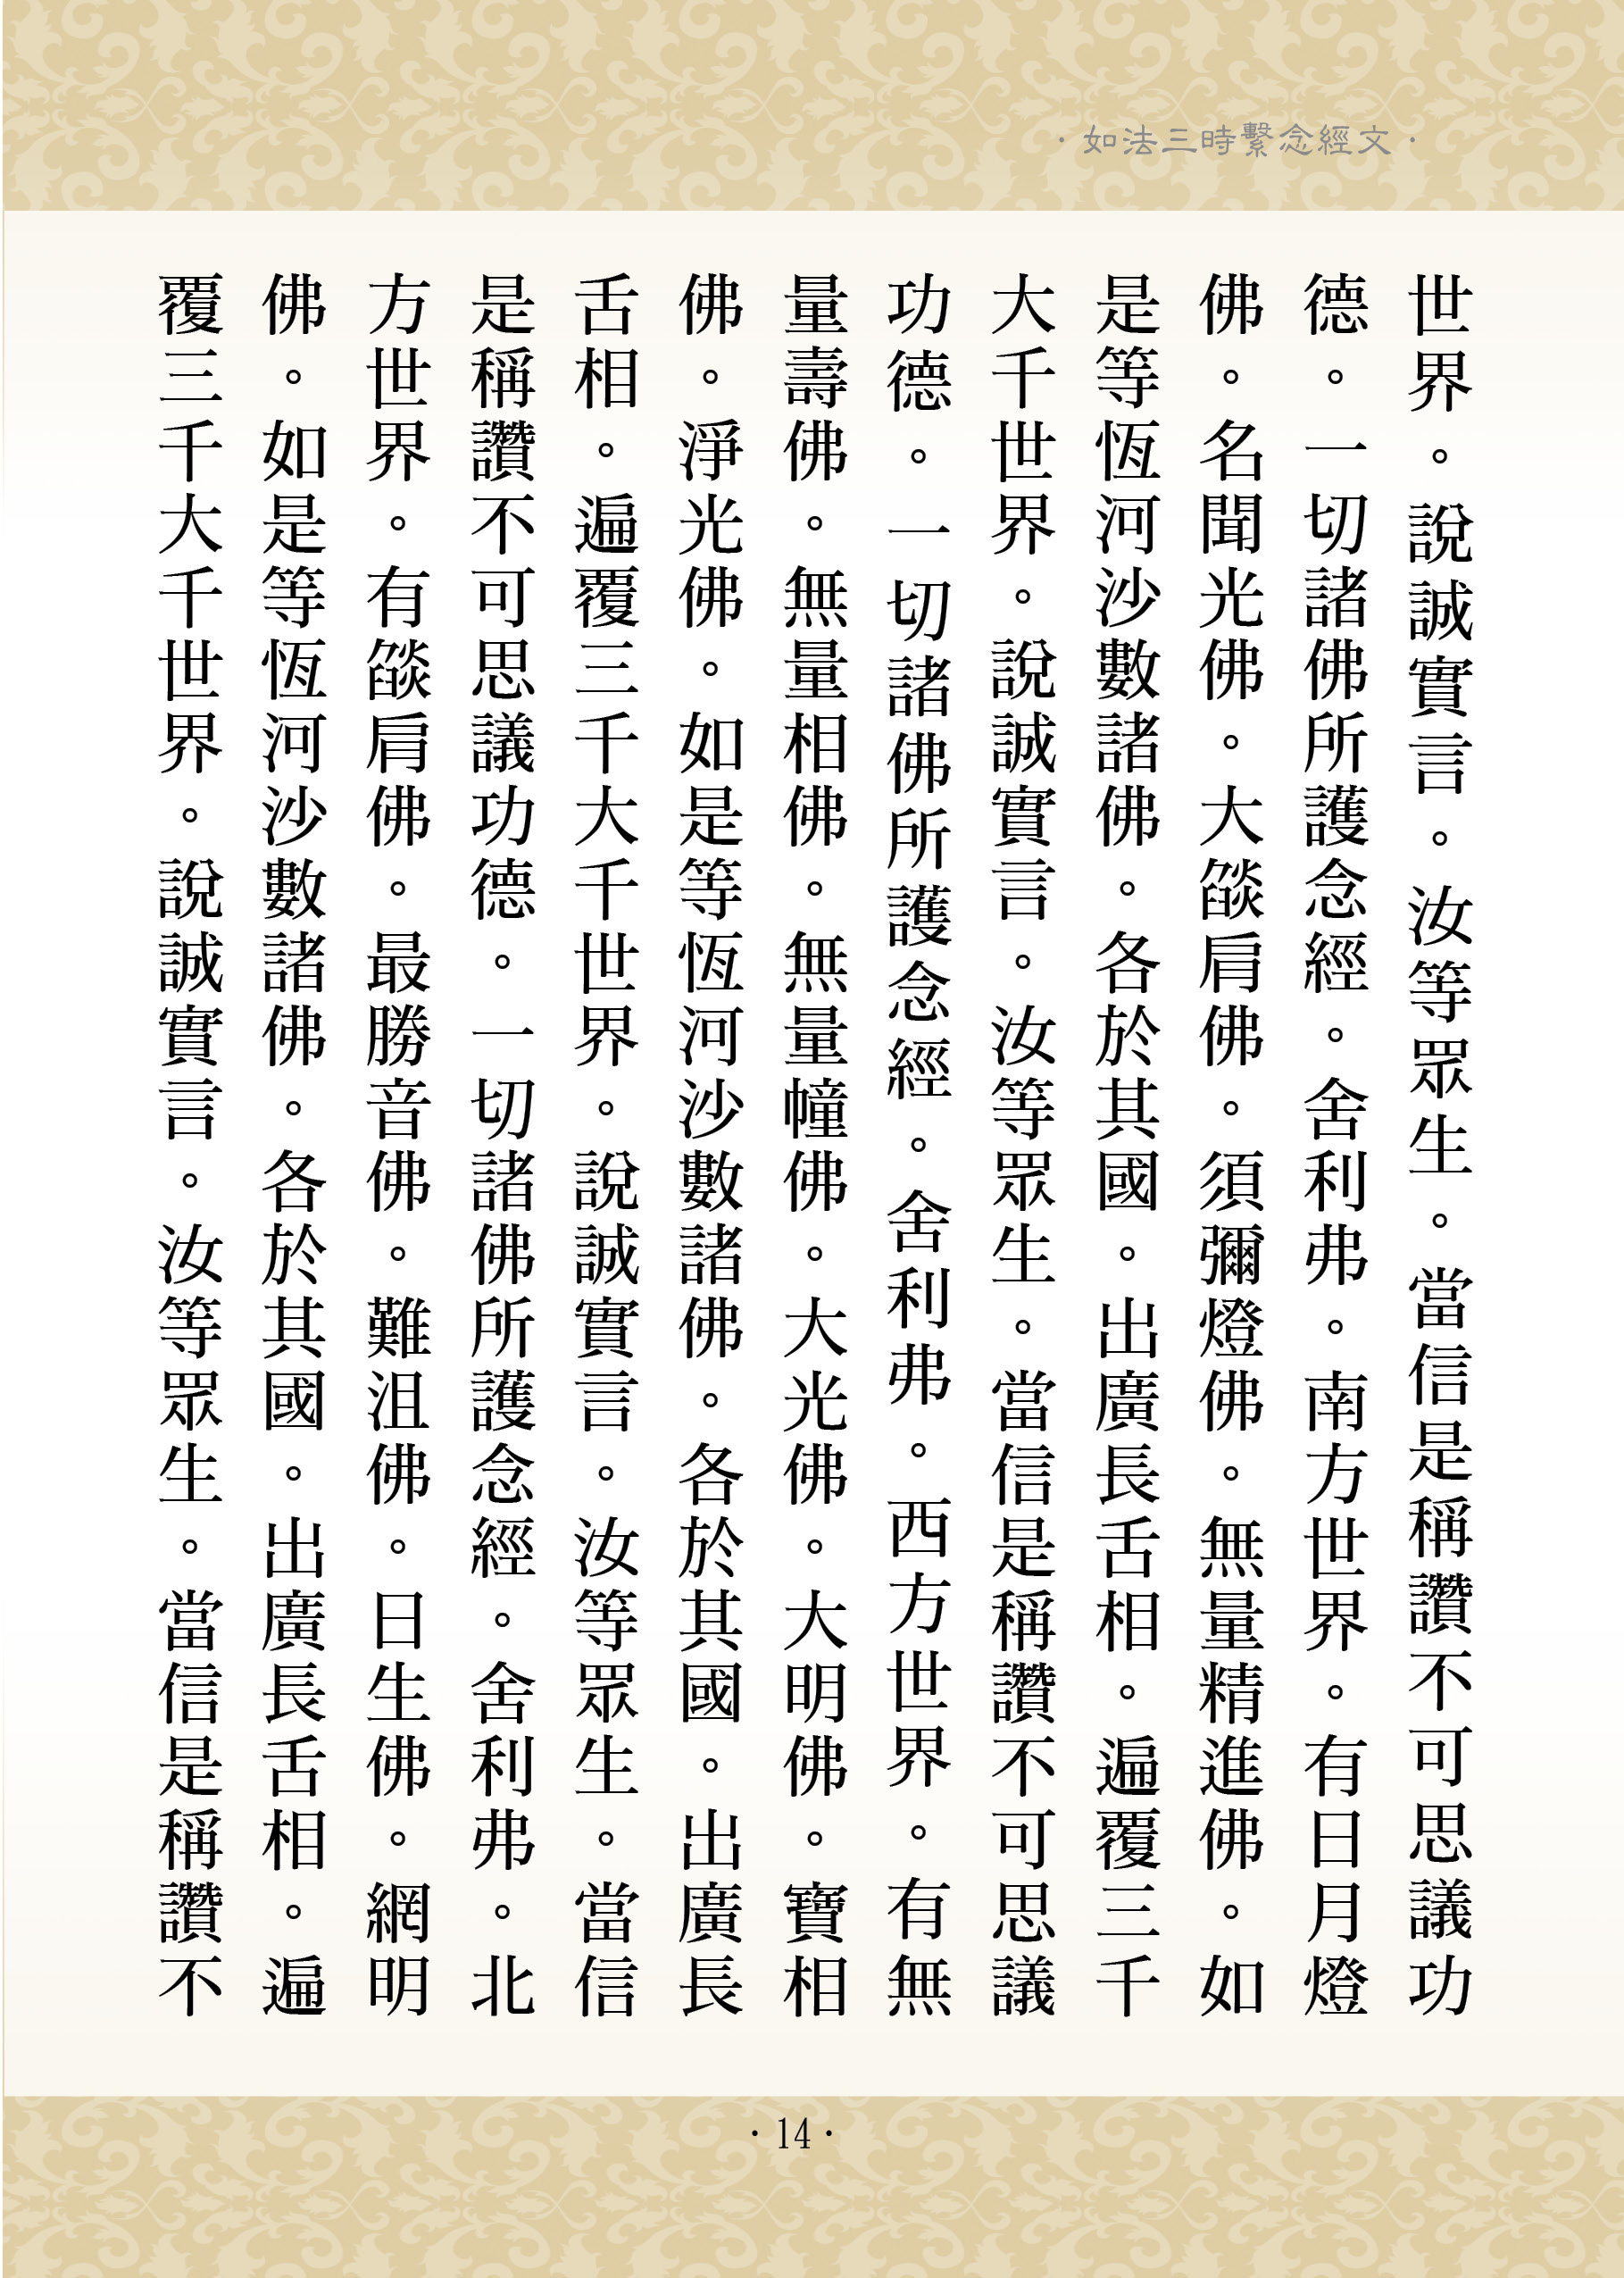 ·如法三時繫念經文·
世界。說誠實言。汝等眾生。當信是稱讚不可思議功
德。一切諸佛所護念經。舍利弗。南方世界。有日月燈
佛。名聞光佛。大燄肩佛。須彌燈佛。無量精進佛。如
是等恆河沙數諸佛。各於其國。出廣長舌相。遍覆三千
大千世界。說誠實言。汝等眾生。當信是稱讚不可思議
功德。一切諸佛所護念經。舍利弗。西方世界。有無
量壽佛。無量相佛。無量幢佛。大光佛。大明佛。寶相
佛。淨光佛。如是等恆河沙數諸佛。各於其國。出廣長
舌相。遍覆三千大千世界。說誠實言。汝等眾生。當信
是稱讚不可思議功德。一切諸佛所護念經。舍利弗。北
方世界。有燄肩佛。最勝音佛。難沮佛。日生佛。網明
佛。如是等恆河沙數諸佛。各於其國。出廣長舌相。遍
覆三千大千世界。說誠實言。汝等眾生。當信是稱讚不
·14·